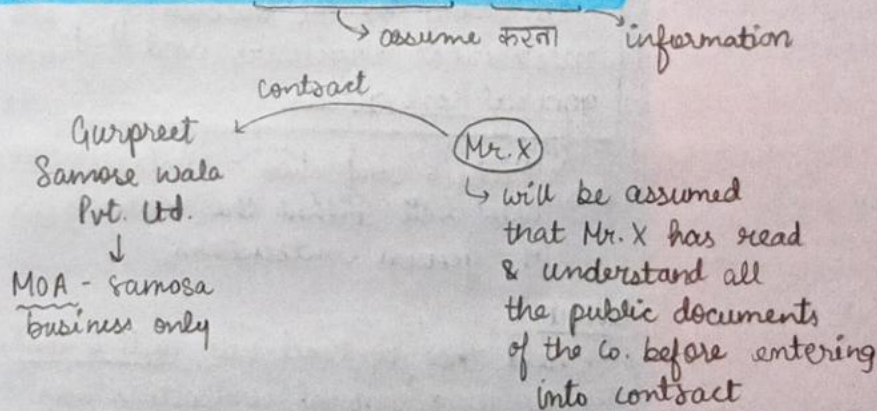 assume करना
information
contract
Gurpreet
Samose Wala
Pvt. Ltd.
MOA - samosa
business only
Mr. X
will be assumed
that Mr. X has read
& understand all
the public documents
of the co. before entering
into contract